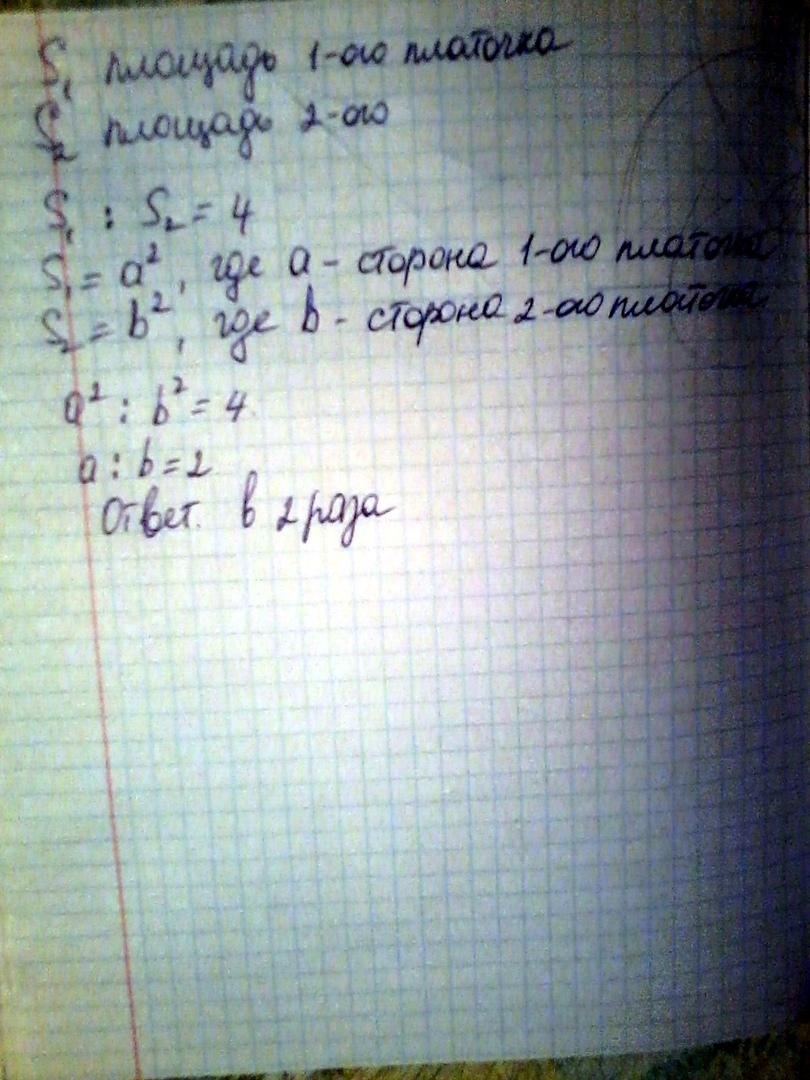 S₁ площадь 1-ого платочка
S₂ площадь 2-ого
S₁ : S₂ = 4
S₁ = a², где a - сторона 1-ого платочка
S₂ = b², где b - сторона 2-ого платочка
a² : b² = 4
a : b = 2
Ответ. в 2 раза